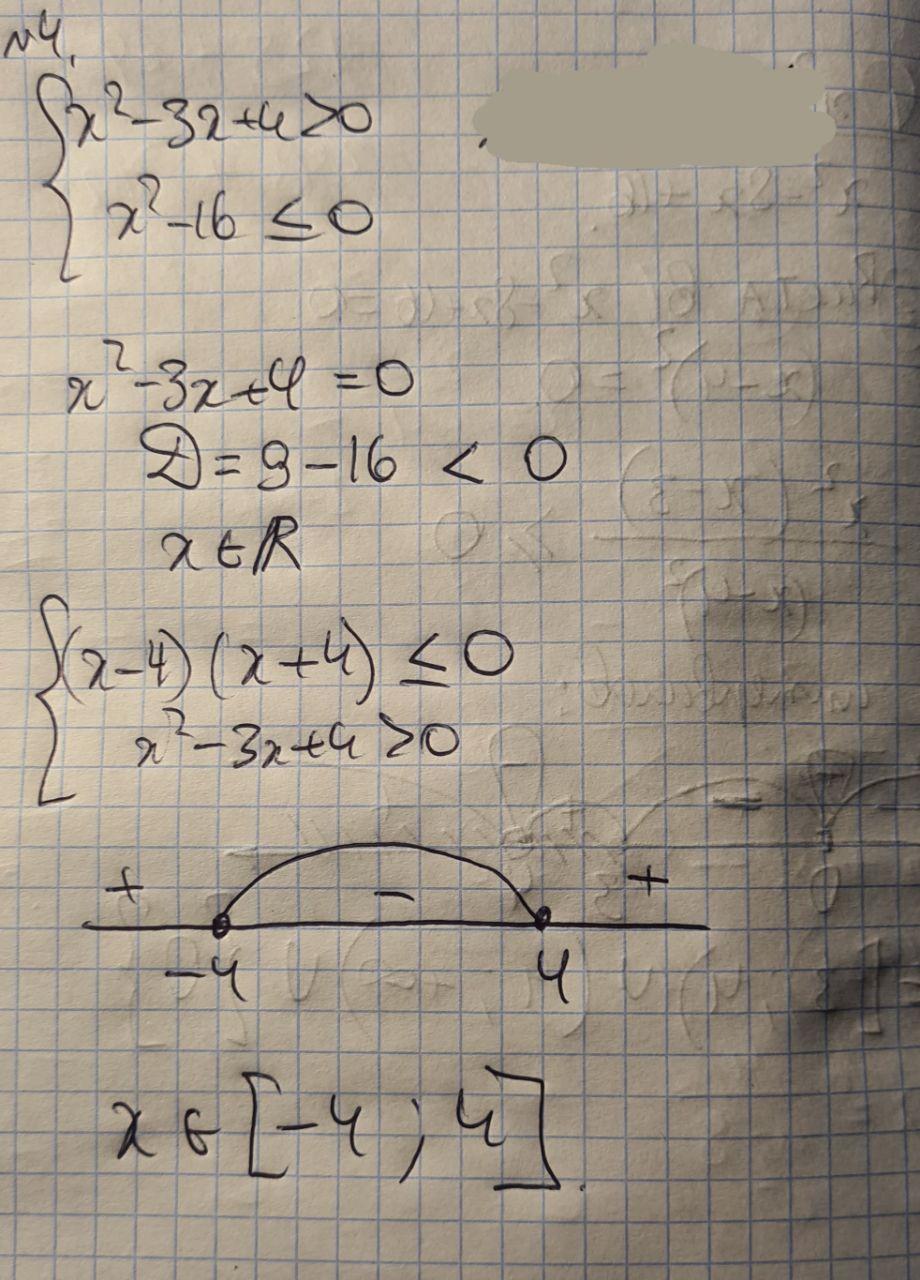 №4.
{ x²-3x+4>0
x²-16 ≤ 0
x²-3x+4=0
D=9-16 < 0
x∈ℝ
{ (x-4)(x+4) ≤ 0
x²-3x+4>0
+ - +
-4 4
x∈[-4; 4].